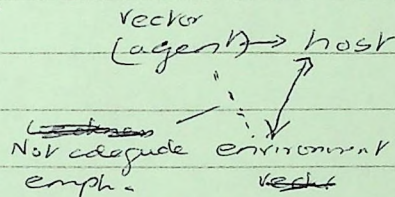 vector
(agent) → host
Not adequate environment
emph.